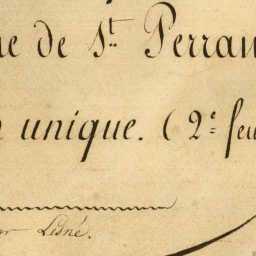 de St. Perran
unique. (2e feu
Lesné.